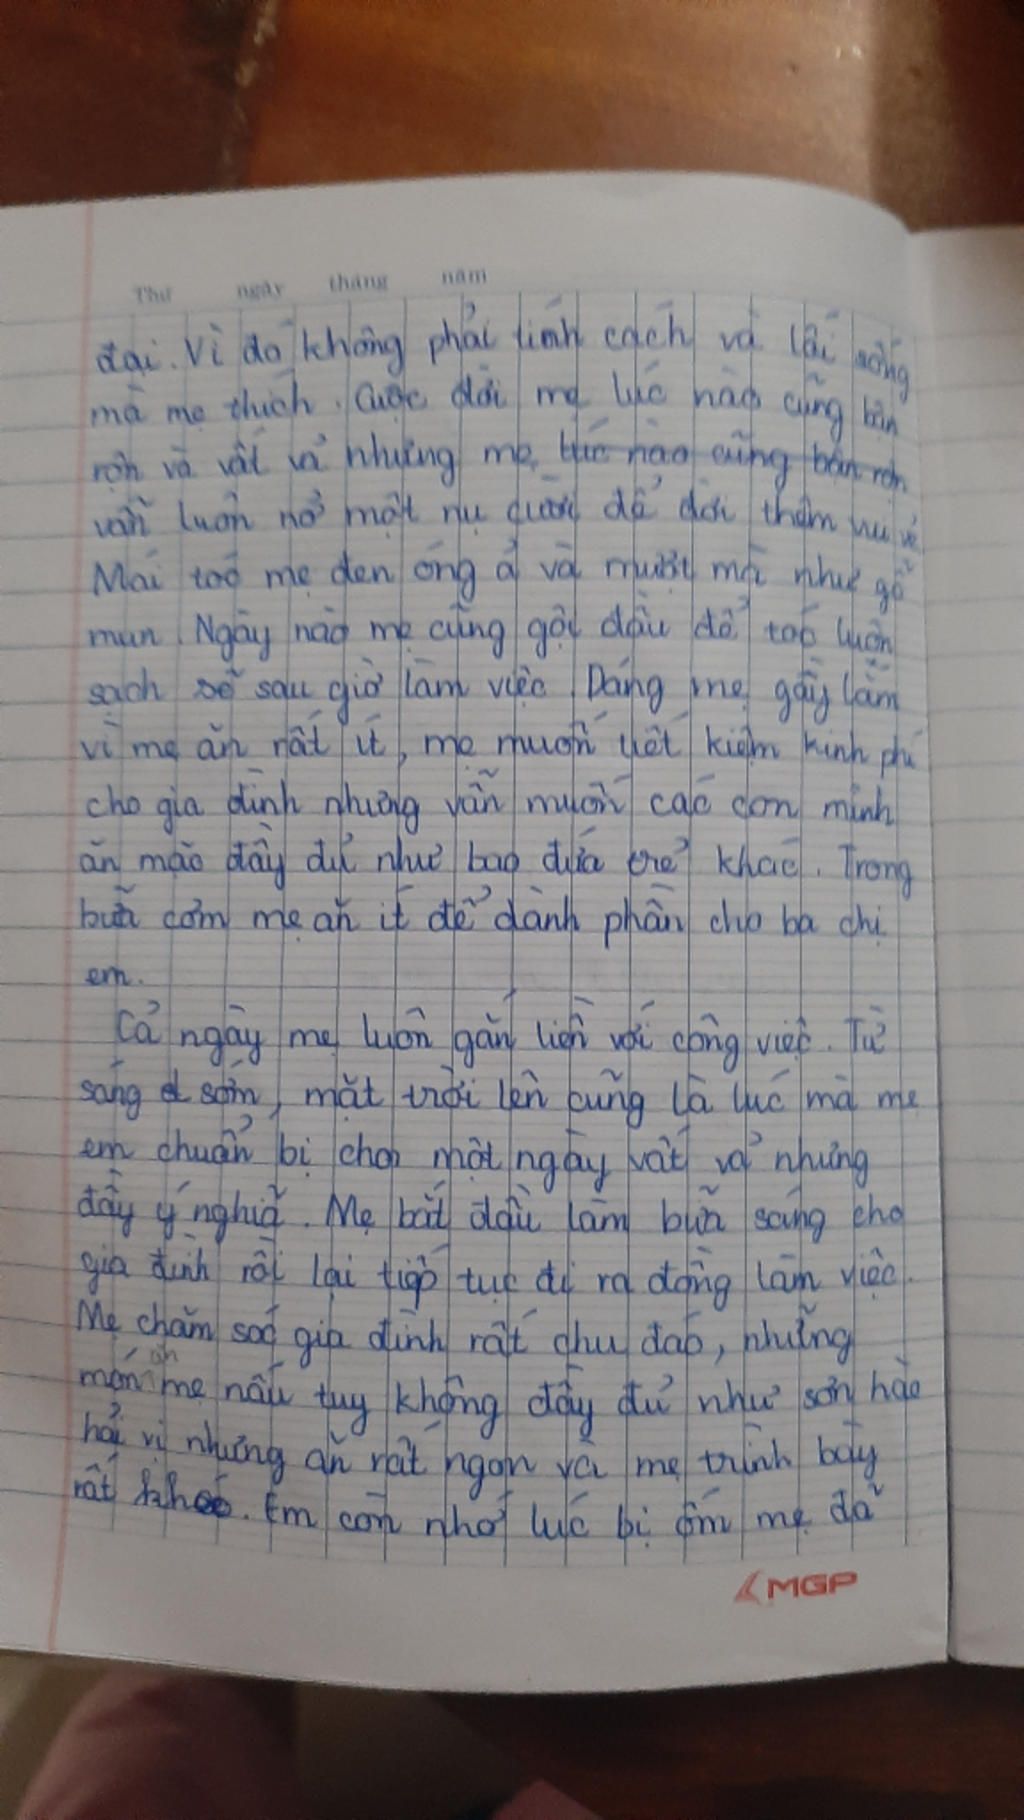 Thứ ngày tháng năm
đại. Vì đó không phải tính cách và lối sống
mà mẹ thích. Cuộc đời mẹ lúc nào cũng bận
rộn và vất vả nhưng mẹ lúc nào cũng bận rộn
vẫn luôn nở một nụ cười để đời thêm vui vẻ
Mái tóc mẹ đen óng ả và mượt mà như gỗ
mun. Ngày nào mẹ cũng gội đầu để tóc luôn
sạch sẽ sau giờ làm việc. Dáng mẹ gầy lắm
vì mẹ ăn rất ít, mẹ muốn tiết kiệm kinh phí
cho gia đình nhưng vẫn muốn các con mình
ăn mặc đầy đủ như bao đứa trẻ khác. Trong
bữa cơm mẹ ăn ít để dành phần cho ba chị
em.
Cả ngày mẹ luôn gắn liền với công việc. Từ
sáng sớm, mặt trời lên cũng là lúc mà mẹ
em chuẩn bị cho một ngày vất vả nhưng
đầy ý nghĩa. Mẹ bắt đầu làm bữa sáng cho
gia đình rồi lại tiếp tục đi ra đồng làm việc.
Mẹ chăm sóc gia đình rất chu đáo, những
món ăn mẹ nấu tuy không đầy đủ như sơn hào
hải vị nhưng ăn rất ngon và mẹ trình bày
rất khéo. Em còn nhớ lúc bị ốm mẹ đã
MGP